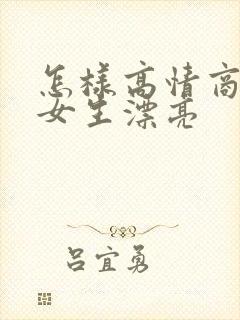 怎样高情商
女生漂亮
吕宜勇